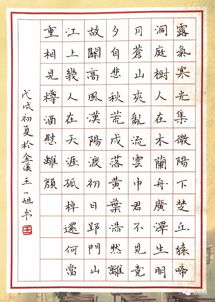 露氣寒光集微陽下楚丘猿啼
洞庭樹人在木蘭舟廣澤生明
月蒼山夾亂流雲中君不見竟
夕自悲秋荒戍落黃葉浩然離
故關高風漢陽渡初日郢門山
江上幾人在天涯孤棹還何當
重相見樽酒慰離顏
戊戌初夏於金溪王一旭书